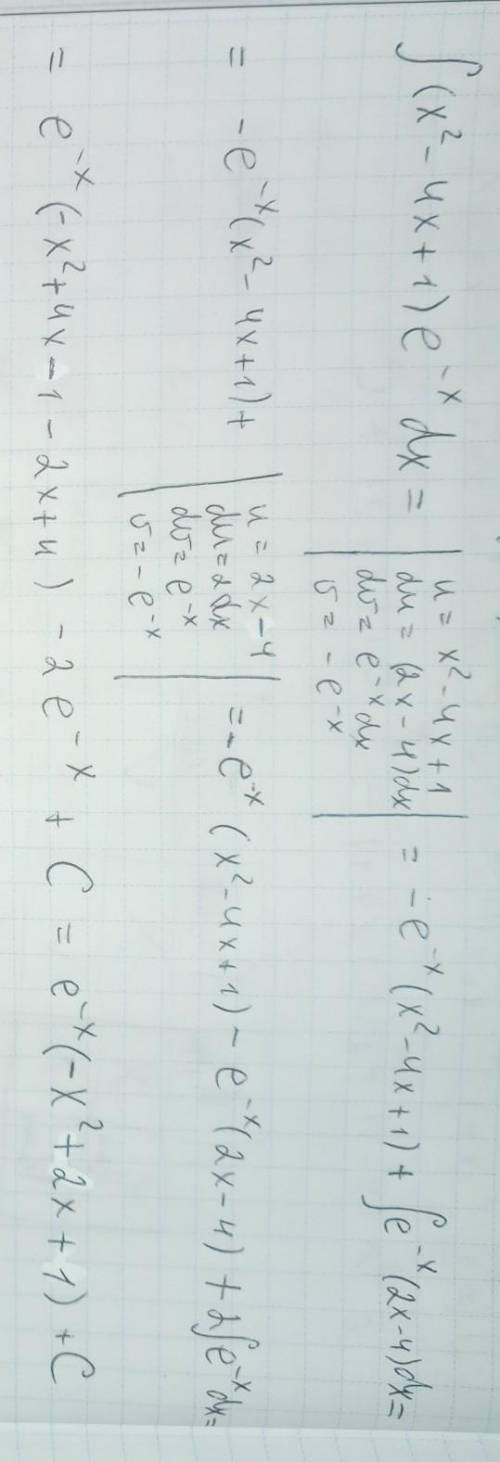 ∫(x² - 4x + 1)e⁻ˣ dx = | u = x² - 4x + 1 du = (2x - 4)dx dv = e⁻ˣ dx v = - e⁻ˣ | = - e⁻ˣ(x² - 4x + 1) + ∫e⁻ˣ(2x - 4)dx =
= - e⁻ˣ(x² - 4x + 1) + | u = 2x - 4 du = 2dx dv = e⁻ˣ v = - e⁻ˣ | = - e⁻ˣ(x² - 4x + 1) - e⁻ˣ(2x - 4) + 2∫e⁻ˣ dx =
= e⁻ˣ(-x² + 4x - 1 - 2x + 4) - 2e⁻ˣ + C = e⁻ˣ(-x² + 2x + 1) + C